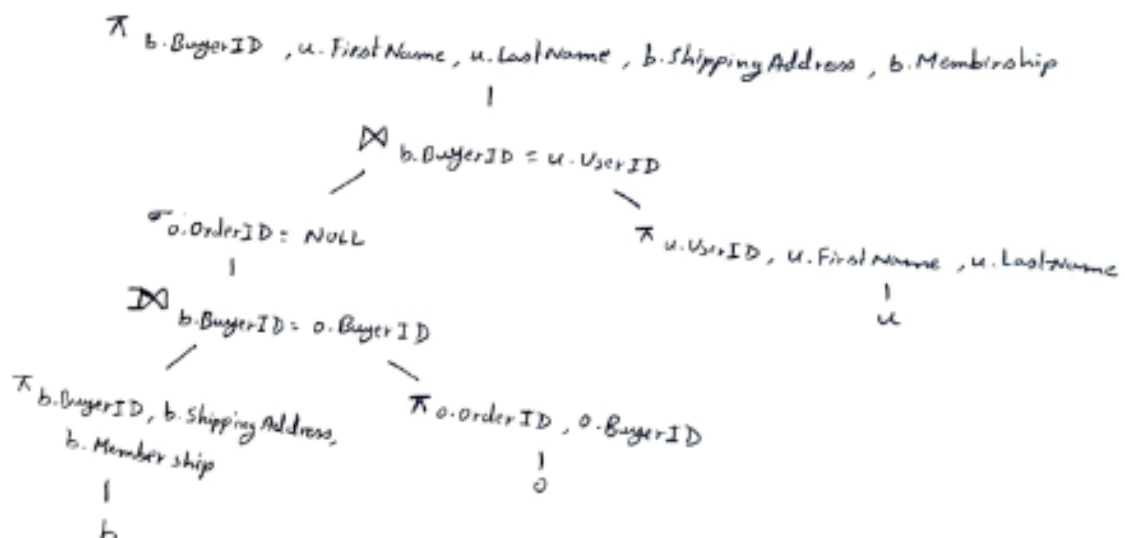 π b.BuyerID , u.FirstName, u.LastName , b.ShippingAddress, b.Membership
⋈ b.BuyerID = u.UserID
σ o.OrderID = NULL
π u.UserID, u.FirstName , u.LastName
u
⟕ b.BuyerID = o.BuyerID
π b.BuyerID, b.ShippingAddress,
b.Membership
π o.OrderID , o.BuyerID
o
b